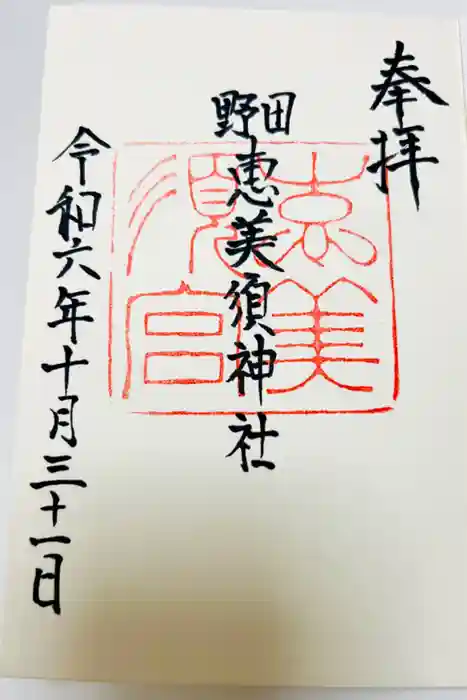 奉拝
野田
恵美須神社
令和六年十月三十一日
恵美
須宮